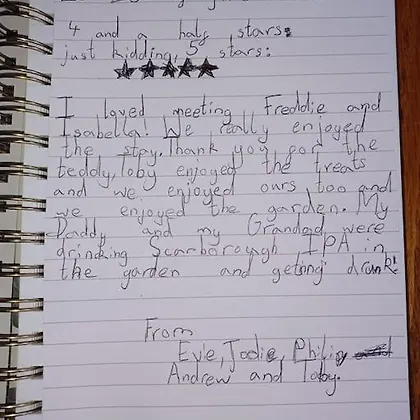 4 and a half stars:
just kidding, 5 stars:
★★★★★
I loved meeting Freddie and
Isabella! We really enjoyed
the stay. Thank you for the
teddy. Toby enjoyed the treats
and we enjoyed ours too and
we enjoyed the garden. My
Daddy and my Grandad were
drinking Scarborough IPA in
the garden and geting drunk!
From
Evie, Jodie, Philip
Andrew and Toby.